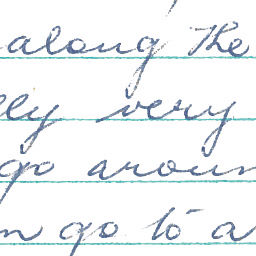 along the
lly very
go aroun
n go to a